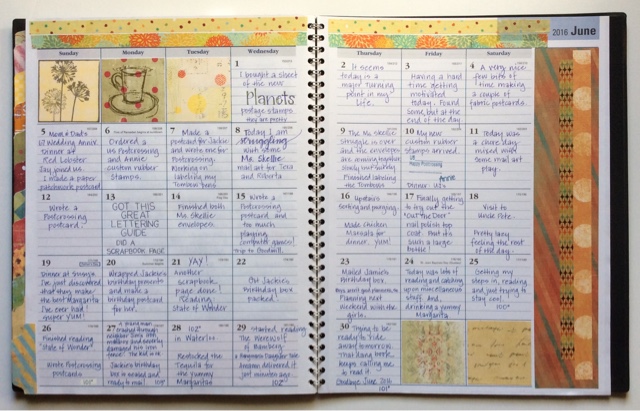 2016 June
Sunday Monday Tuesday Wednesday Thursday Friday Saturday
1
I bought a sheet
of the new
Planets
postage stamps.
They are pretty
2 It seems
today is a
major turning
point in my
life.
3
Having a hard
time getting
motivated
today. Found
some, but at the
end of the day.
4 A very nice
few bits of
time making
a couple of
fabric postcards.
5 Mom & Dad's
Wedding Anniv.
Dinner at
Red Lobster
Jay joined us.
I made a paper
patchwork postcard
6
Ordered a
US Postcrossing
and Annie
custom rubber
stamps.
7 Made a
postcard for Jackie
and wrote one for
Postcrossing.
Working on
labeling my
Tombow pens
8 Today I am
struggling
with some
Ms. Skellie
mail art for
and Roberta
9 The Ms. Skellie
struggle is over
and the envelopes
are coming together
slowly but surely.
Finished labeling
the Tombows
10 My new
custom rubber
stamps arrived.
Happy Postcrossing
Annie
Dinner:
11 Today was
a chore day
mixed with
some mail art
play.
12
Wrote a
Postcrossing
postcard.
13
GOT THIS
GREAT
LETTERING
GUIDE
DID A
SCRAPBOOK PAGE
14
Finished both
Ms Skellie
envelopes
15 Wrote a
Postcrossing
postcard and
too much
playing
computer games!
Trip to Goodwill.
16 Upstairs
sorting and purging.
Made Chicken
Marsala for
dinner. YUM!
17 Finally getting
to try out the
"Out the Door"
nail polish top
coat. But it's
such a large
bottle!
18
Visit to
Uncle Pete.
Pretty lazy
feeling the rest
of the day.
19
Dinner at
I've just discovered
that they make
the best Margarita
I've ever had.
Super YUM!
20
Wrapped Jackie's
birthday presents
and made a
birthday postcard
for her.
21 YAY!
Another
scrapbook
page done!
Reading
State of Wonder
22
Got Jackie's
Birthday box
packed!
23
Mailed Jamie's
Birthday box.
Planning next
weekend with the
girls.
24
Today was lots
of reading and catching
up on miscellaneous
stuff. And,
drinking a yummy
Margarita
25
Getting my
steps in, reading
and just trying to
stay cool.
100°
26
Finished reading
"State of Wonder"
Wrote Postcrossing
postcards
27
Jackie's birthday
box is sealed and
ready to mail!
28 102°
in Waterloo
Restocked the
Tequila for
the yummy
Margaritas
29 Started reading
The Werewolf
of Bamberg
a Hangman's Daughter Tale
Amazon delivered it
just minutes ago.
102°
30 Trying to be
ready to hide
away tomorrow.
That dang book
keeps calling me
to read it.
Goodbye June 2016
101°